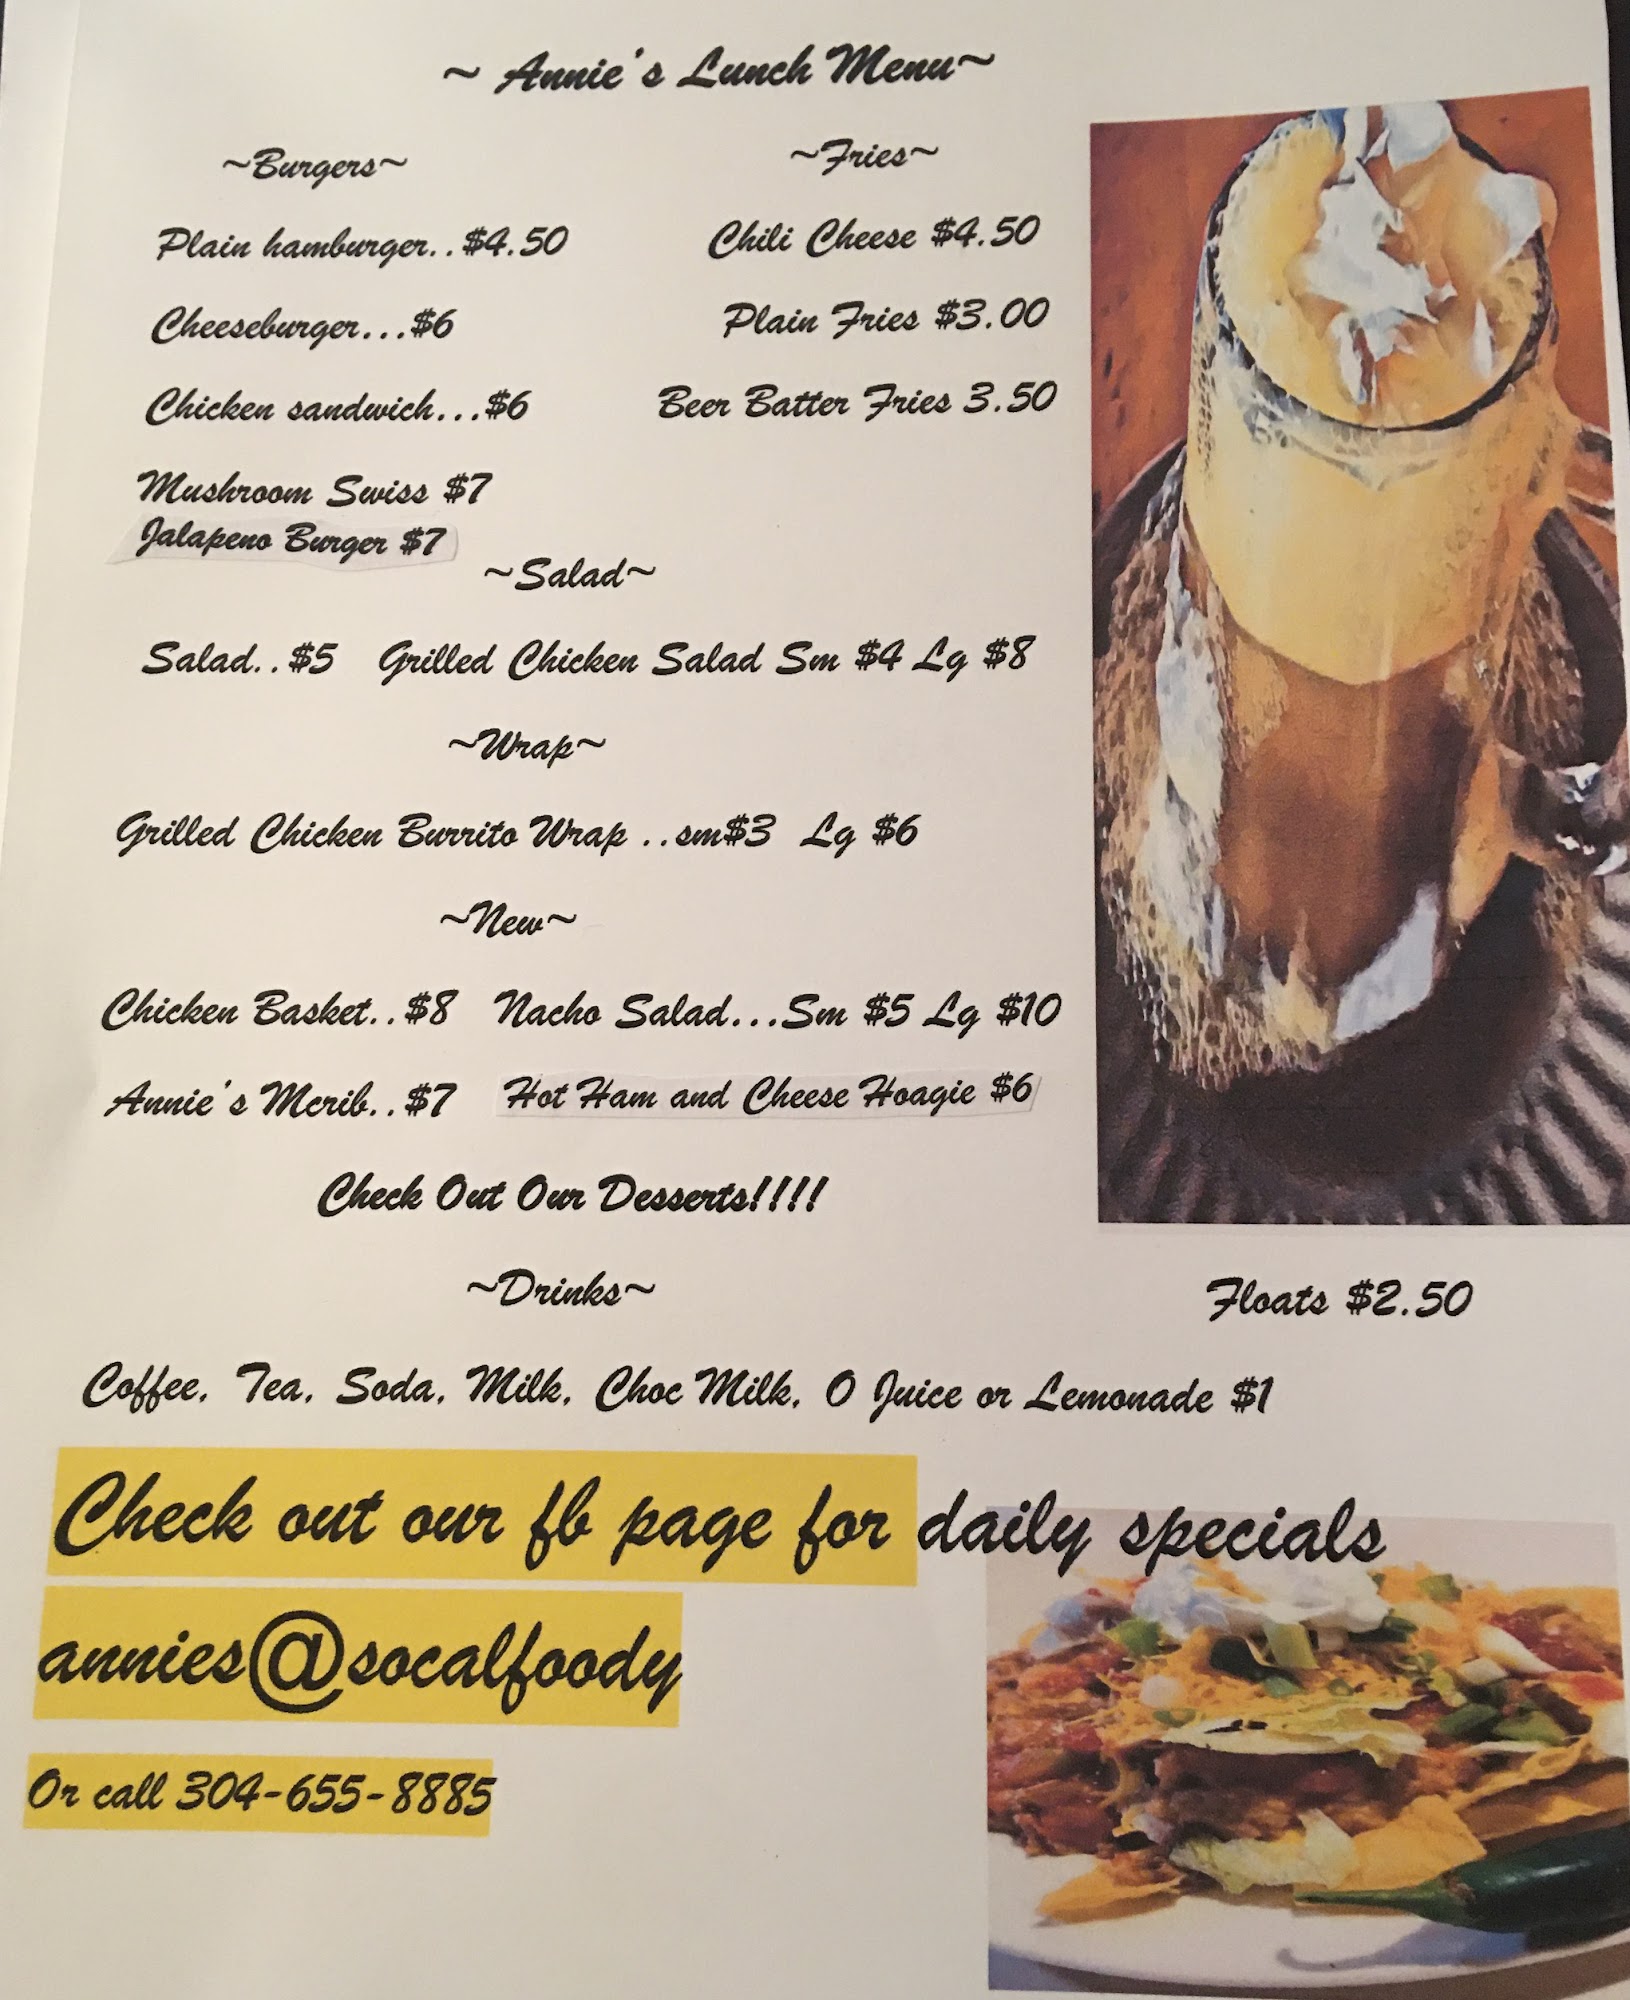 ~ Annie's Lunch Menu~
~Burgers~
~Fries~
Plain hamburger..$4.50
Chili Cheese $4.50
Cheeseburger...$6
Plain Fries $3.00
Chicken sandwich...$6
Beer Batter Fries 3.50
Mushroom Swiss $7
Jalapeno Burger $7
~Salad~
Salad..$5 Grilled Chicken Salad Sm $4 Lg $8
~Wrap~
Grilled Chicken Burrito Wrap ..sm$3 Lg $6
~New~
Chicken Basket..$8 Nacho Salad...Sm $5 Lg $10
Annie's Mcrib..$7 Hot Ham and Cheese Hoagie $6
Check Out Our Desserts!!!!
~Drinks~
Floats $2.50
Coffee, Tea, Soda, Milk, Choc Milk, O Juice or Lemonade $1
Check out our fb page for daily specials
annies@socalfoody
Or call 304-655-8885